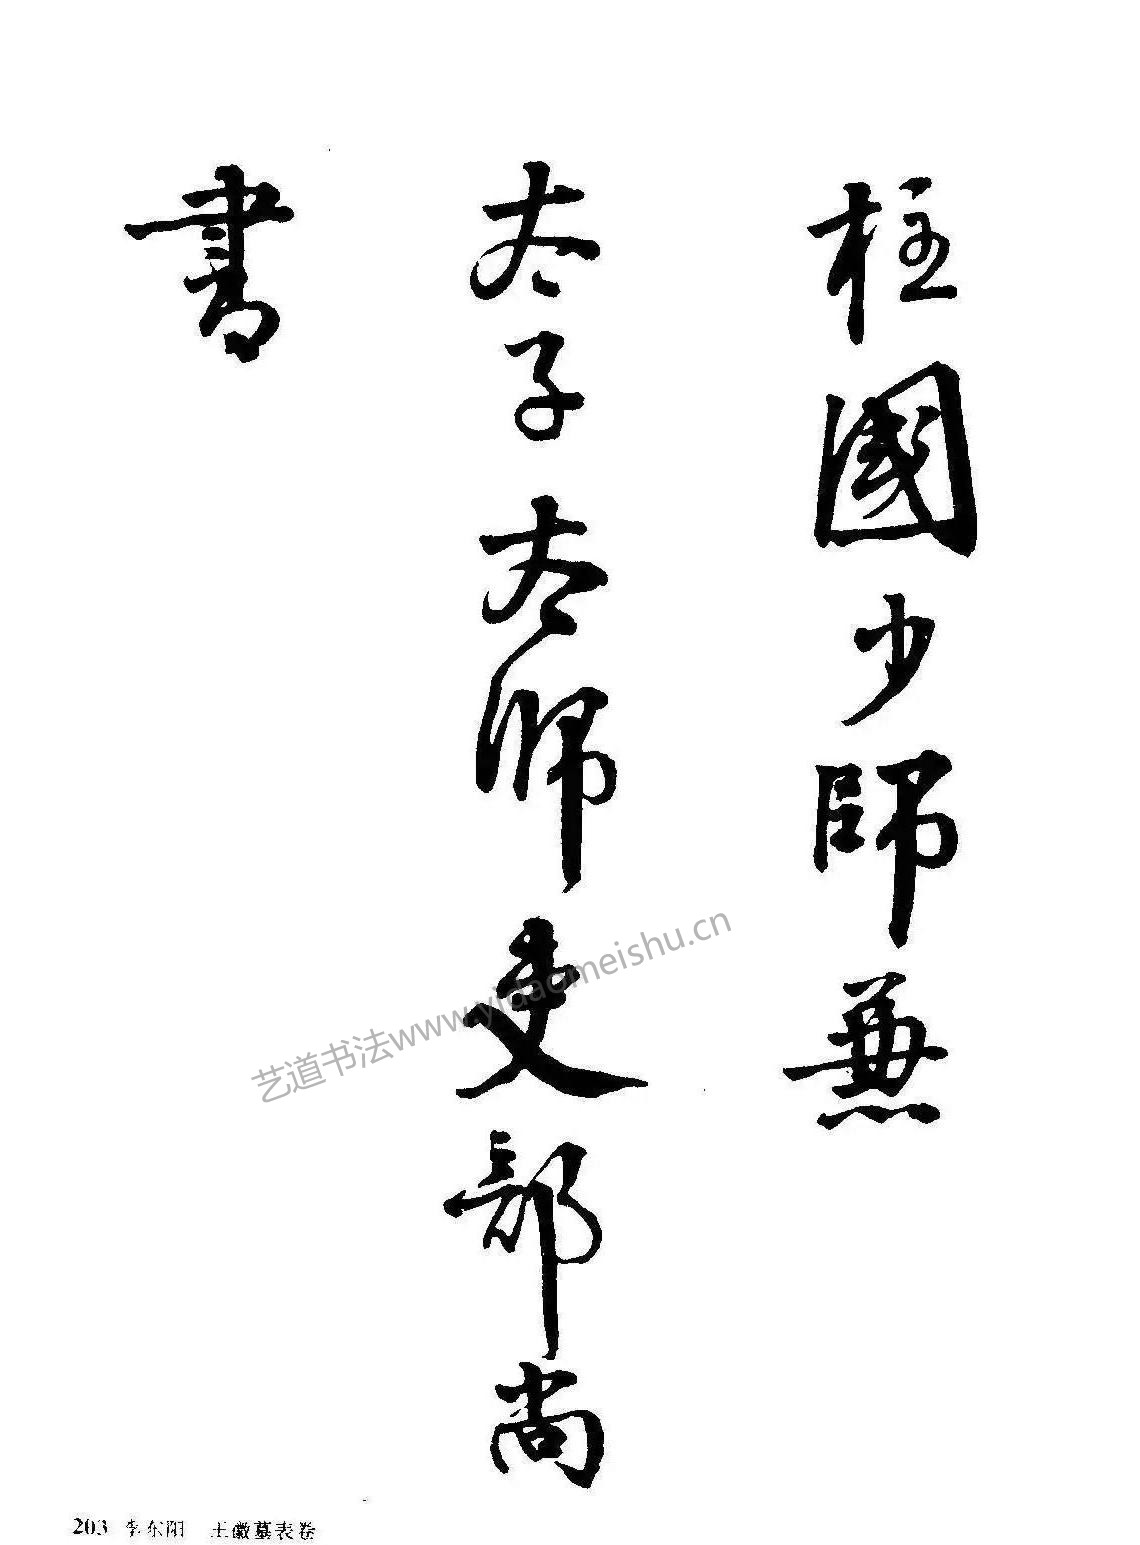 柱國少師兼
太子太師吏部尚
書
艺道书法www.yidaomeishu.cn
203 李东阳 王徽墓表卷